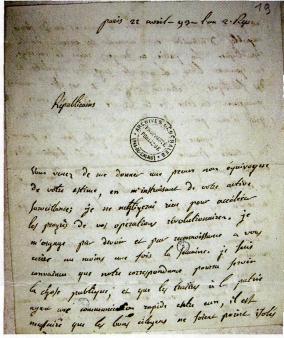 19
paris 22 avril - 93 - l'an 2. Rep.
Républicains
ARCHIVES GENERALES
Vous venez de me donner une preuve non équivoque
de votre estime, en m'instruisant de votre active
surveillance; je ne négligerai rien pour accélérer
les progrès de vos opérations révolutionnaires. je
m'engage par devoir et par reconnaissance a vous
écrire au moins une fois la semaine. je suis
convaincu que notre correspondance pourra servir
la chose publique, et que les traitres à la patrie
ayant une communication rapide entre eux, il est
nécessaire que les bons citoyens ne soient point isolés